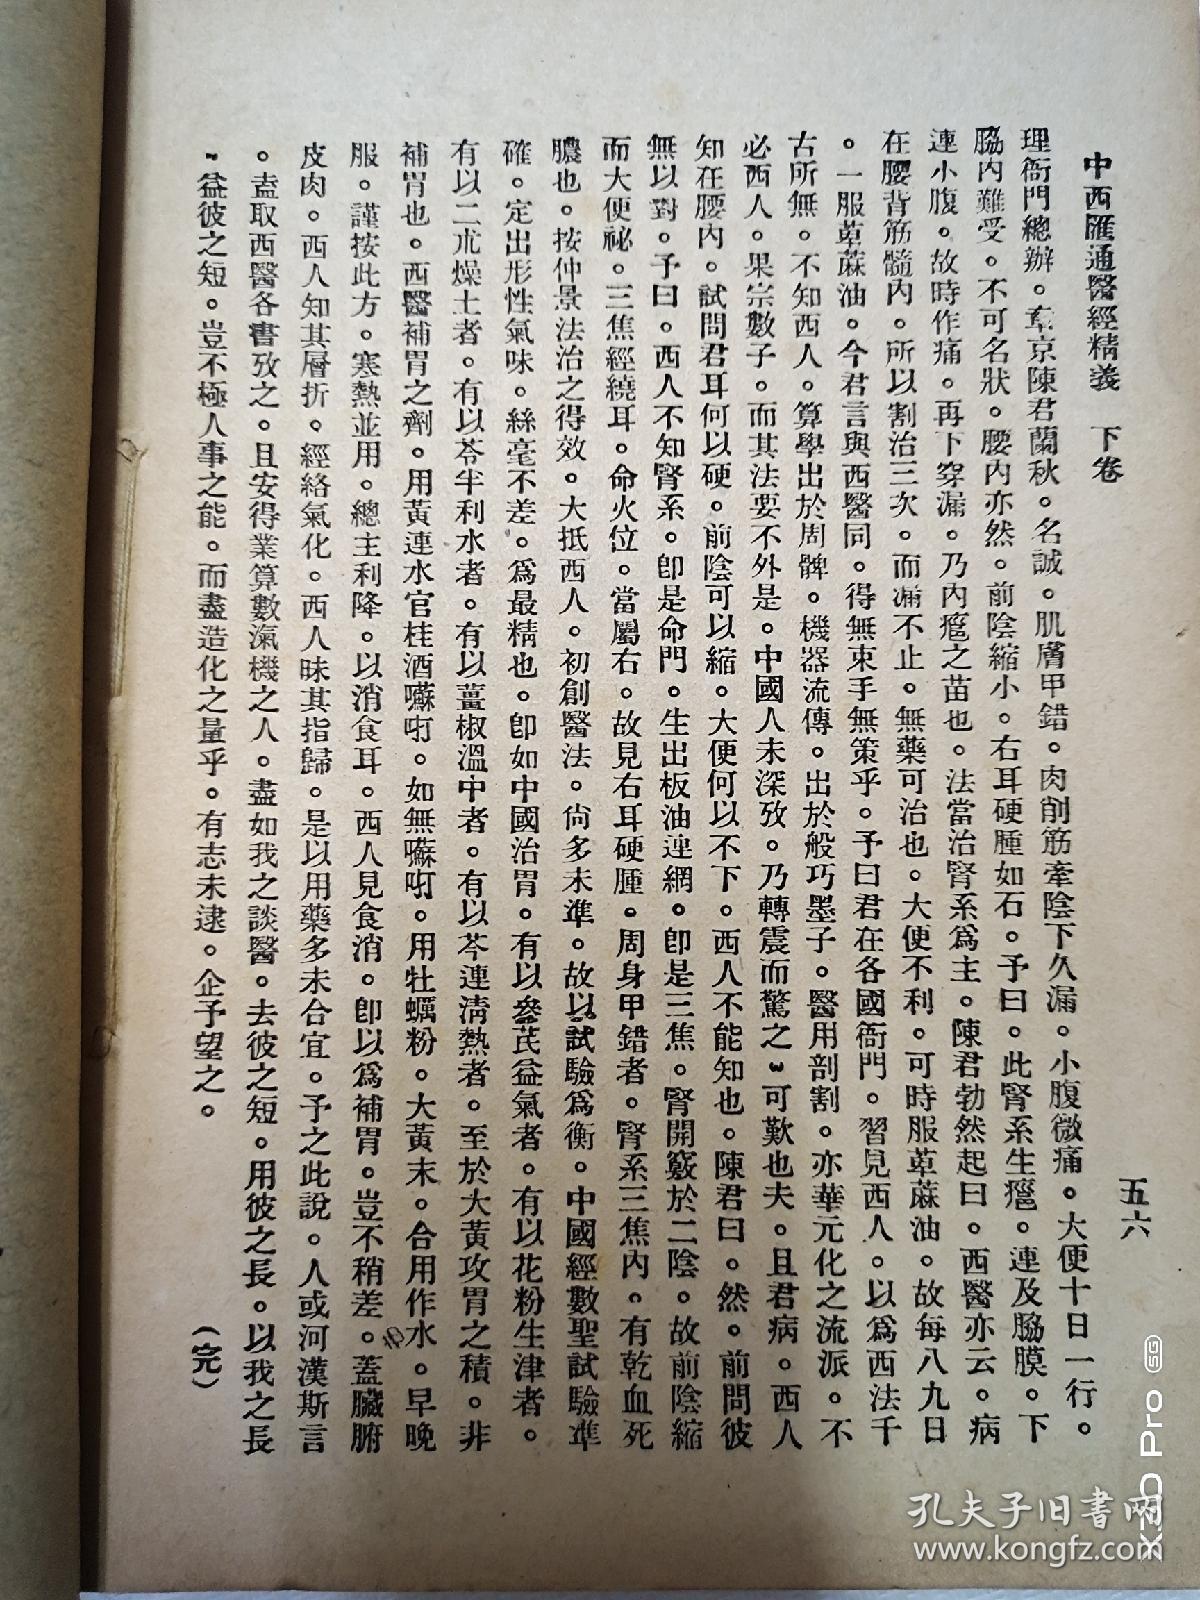 中西匯通醫經精義　下卷
五六
理衙門總辦。章京陳君蘭秋。名誠。肌膚甲錯。肉削筋牽陰下久漏。小腹微痛。大便十日一行。
脇內難受。不可名狀。腰內亦然。前陰縮小。右耳硬腫如石。予曰。此腎系生癰。連及脇膜。下
連小腹。故時作痛。再下穿漏。乃內癰之苗也。法當治腎系爲主。陳君勃然起曰。西醫亦云。病
在腰背筋髓內。所以割治三次。而漏不止。無藥可治也。大便不利。可時服萆蔴油。故每八九日
。一服萆蔴油。今君言與西醫同。得無束手無策乎。予曰君在各國衙門。習見西人。以爲西法千
古所無。不知西人。算學出於周髀。機器流傳。出於般巧墨子。醫用剖割。亦華元化之流派。不
必西人。果宗數子。而其法要不外是。中國人未深攷。乃轉震而驚之。可歎也夫。且君病。西人
知在腰內。試問君耳何以硬。前陰可以縮。大便何以不下。西人不能知也。陳君曰。然。前問彼
無以對。予曰。西人不知腎系。卽是命門。生出板油連網。卽是三焦。腎開竅於二陰。故前陰縮
而大便祕。三焦經繞耳。命火位。當屬右。故見右耳硬腫。周身甲錯者。腎系三焦內。有乾血死
膿也。按仲景法治之得效。大抵西人。初創醫法。尙多未準。故以試驗爲衡。中國經數聖試驗準
確。定出形性氣味。絲毫不差。爲最精也。卽如中國治胃。有以參芪益氣者。有以花粉生津者。
有以二朮燥土者。有以苓半利水者。有以薑椒溫中者。有以芩連淸熱者。至於大黃攻胃之積。非
補胃也。西醫補胃之劑。用黃連水官桂酒囌叮。如無囌叮。用牡蠣粉。大黃末。合用作水。早晚
服。謹按此方。寒熱並用。總主利降。以消食耳。西人見食消。卽以爲補胃。豈不稍差。蓋臟腑
皮肉。西人知其層折。經絡氣化。西人昧其指歸。是以用藥多未合宜。予之此說。人或河漢斯言
。盍取西醫各書攷之。且安得業算數滊機之人。盡如我之談醫。去彼之短。用彼之長。以我之長
。益彼之短。豈不極人事之能。而盡造化之量乎。有志未逮。企予望之。　（完）
X30 Pro 5G
孔夫子旧书网
www.kongfz.com